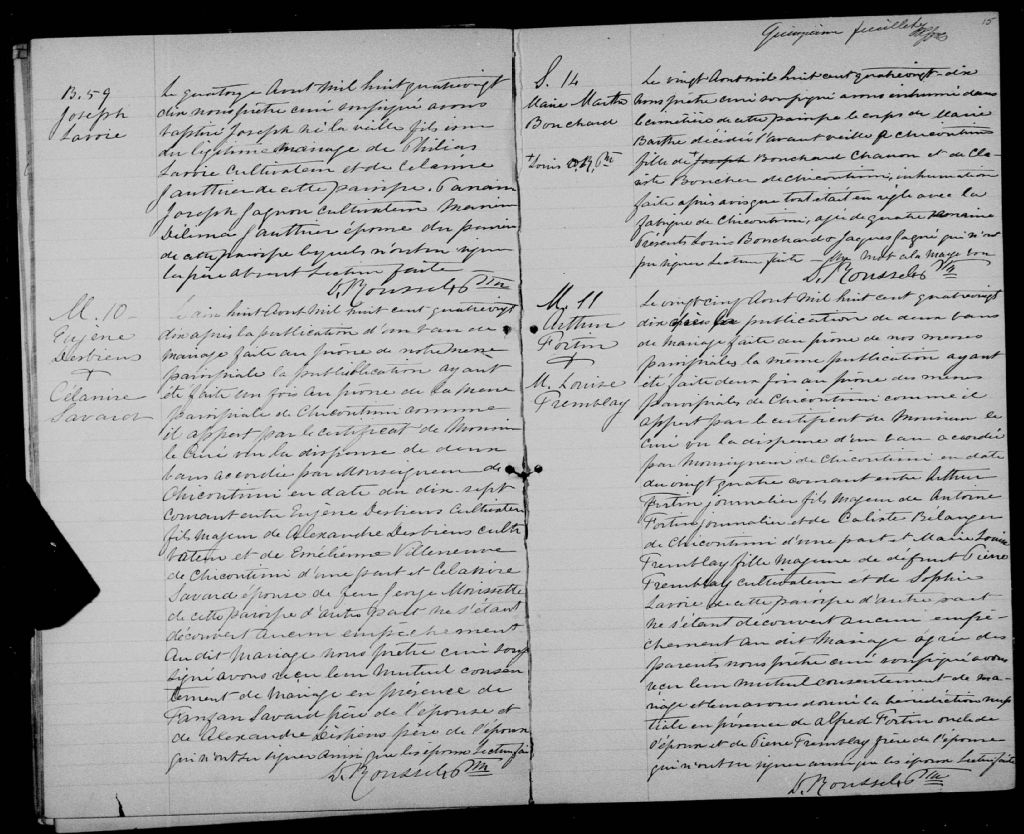 B. 59
Joseph
Lavoie
Le quatorze Aout mil huit cent quatrevingt
dix nous prêtre curé soussigné avons
baptisé Joseph né la veille fils issu
du légitime mariage de Philias
Lavoie cultivateur et de Celanire
Gauthier de cette paroisse. Parrain
Joseph Gagnon cultivateur Marraine
Délima Gauthier épouse du parrain
de cette paroisse lesquels n'ont su signer
le père absent Lecture faite
D. Roussel, Ptre
M. 10
Eugène
Desbiens
+
Célanire
Savard
Le dix huit Aout mil huit cent quatrevingt
dix après la publication d'un ban de
mariage faite au prône de notre messe
paroissiale la publication ayant
été faite un fois au prône de la messe
paroissiale de Chicoutimi comme
il appert par le certificat de Monsieur
le Curé vu la dispense de deux
bans accordée par Monseigneur de
Chicoutimi en date du dix-sept
courant entre Eugène Desbiens Cultivateur
fils majeur de Alexandre Desbiens culti
vateur et de Emélienne Villeneuve
de Chicoutimi d'une part et Célanire
Savard épouse de feu George Morissette
de cette paroisse d'autre part ne s'étant
découvert aucun empêchement
au dit mariage nous prêtre curé sous
signé avons reçu leur mutuel consen
tement de mariage en présence de
Savard père de l'épouse et
de Alexandre Desbiens père de l'époux
qui n'ont su signer ainsi que les époux Lecture faite
D. Roussel, Ptre
15
Quinzième feuillet
S. 14
Marie Marthe
Bouchard
+ Louis D.R. Ptre
Le vingt Aout mil huit cent quatrevingt-dix
nous prêtre curé soussigné avons inhumé dans
le cimetière de cette paroisse le corps de Marie
Marthe décédée l'avant veille à Chicoutimi
fille de Joseph Bouchard Charron et de
Boucher de Chicoutimi, inhumation
faite après avis que tout était en règle avec la
fabrique de Chicoutimi, agée de quatre semaine
Présents Louis Bouchard & Jacques Gagné qui n'ont
pu signer Lecture faite mot à la marge bon
D. Roussel, Ptre
M. 11
Arthur
Fortin
+
M. Louise
Tremblay
Le vingt cinq Aout mil huit cent quatrevingt
dix après la publication de deux bans
de mariage faite au prône de nos messes
paroissiales la même publication ayant
été faite deux fois au prône des messes
paroissiales de Chicoutimi comme il
appert par le certificat de Monsieur le
curé vu la dispense d'un ban accordée
par Monseigneur de Chicoutimi en date
du vingt quatre courant entre Arthur
Fortin journalier fils majeur de Antoine
Fortin journalier et de Caliste Bélanger
de Chicoutimi d'une part et Marie Louise
Tremblay fille majeure de défunt Pierre
Tremblay cultivateur et de Sophie
Lavoie de cette paroisse d'autre part
ne s'étant découvert aucun empê-
chement au dit Mariage agrée des
parents nous prêtre curé soussigné avons
reçu leur mutuel consentement de ma-
riage et leur avons donné la bénédiction nup
tiale en présence de Alfred Fortin oncle de
l'époux et de Pierre Tremblay frère de l'épouse
qui n'ont su signer ainsi que les époux Lecture faite
D. Roussel, Ptre